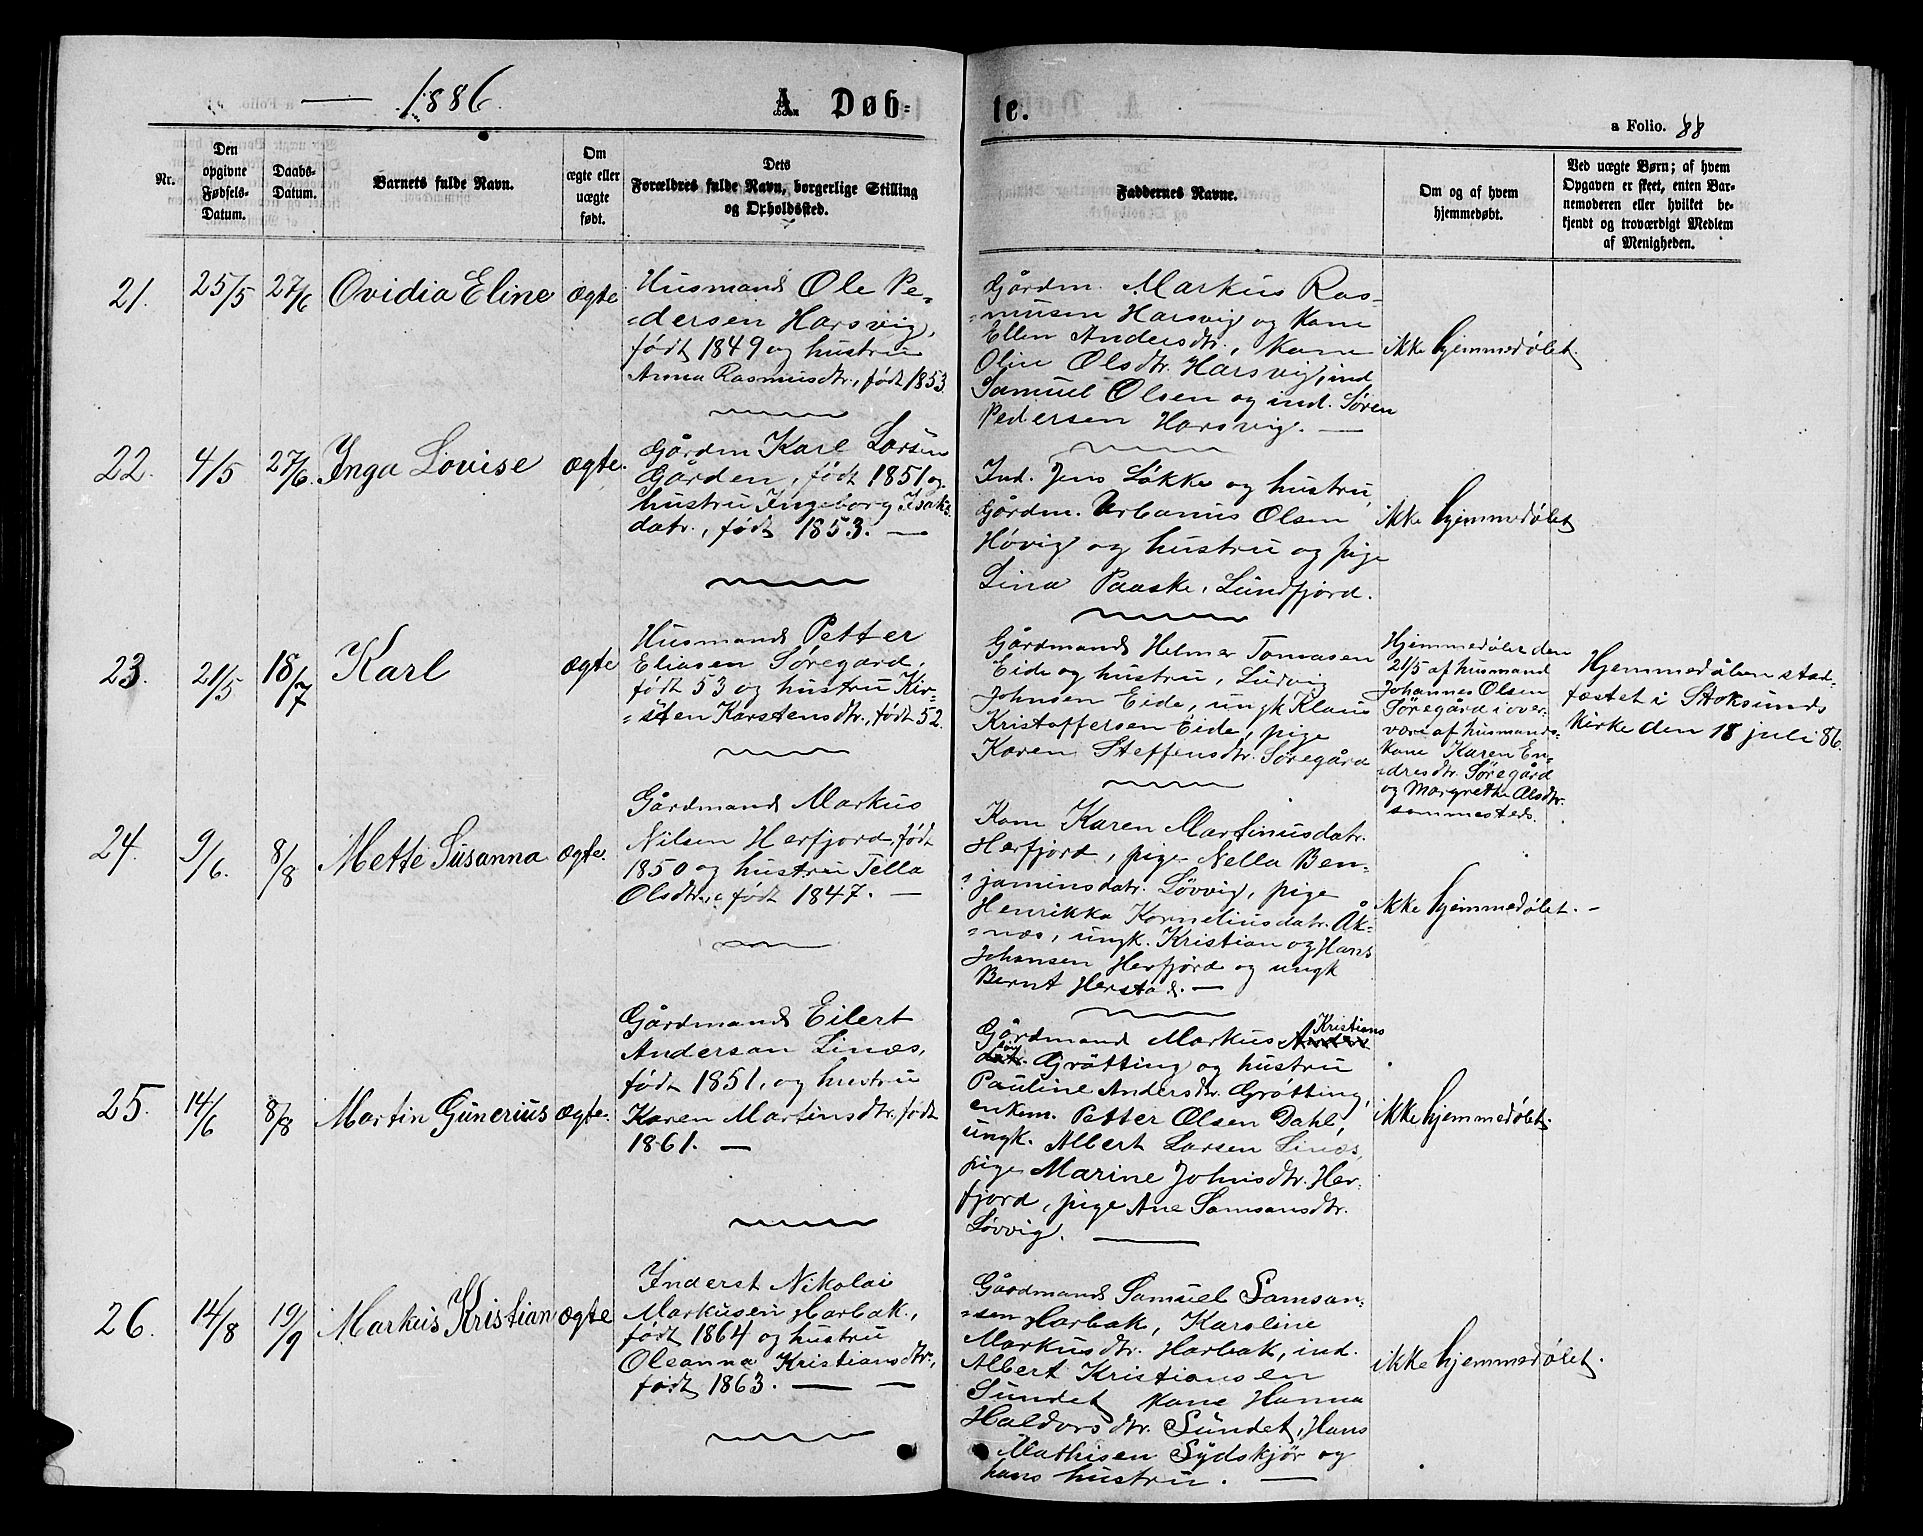 1886.
A. Døb-
te.
a Folio. 88
Nr.
Den
opgivne
Fødsels-
Datum.
Daabs-
Datum.
Barnets fulde Navn.
Om
ægte eller
uægte
født.
Dets
Forældres fulde Navn, borgerlige Stilling
og Opholdssted.
Faddernes Navne.
Om og af hvem
hjemmedøbt.
Ved uægte Børn; af hvem
Opgaven er skeet, enten Bar-
nemoderen eller hvilket be-
kjendt og troværdigt Medlem
af Menigheden.
21. 25/5 27/6 Ovidia Eline ægte
Husmand Ole Pe-
=dersen Harsvig,
født 1849 og hustru
Anna Rasmusdtr., født 1853.
Gårdm. Markus Ras-
=musen Harsvig og Kone
Ellen Andersdtr., Kone
Oline Olsdtr. Harsvig, ind.
Samuel Olsen og ind. Søren
Pedersen Harsvig. —
ikke hjemmedøbt.
22. 4/5 27/6. Inga Lovise ægte.
Gårdm Karl Larsen
Gården, født 1851 og
hustru Ingeborg Isaks-
datr., født 1853. —
Ind. Jens Løkke og hustru,
Gårdm. Urbanus Olsen
Høvig og hustru og pige
Lina Paaske, Lundfjord.
ikke hjemmedøbt
23. 21/5 18/7 Karl ægte
Husmand Petter
Eliasen Søregård,
født 53 og hustru Kir-
=sten Karstensdtr., født 52.
Gårdmand Helmer Tomasen
Eide og hustru, Ludvig
Johnsen Eide, ungk Klaus
Kristoffersen Eide, pige
Karen Steffensdtr. Søregård
Hjemmedøbt den
21/5 af husmand
Johannes Olsen
Søregård i over-
vær af husmands-
kone Karen En-
=dresdtr. Søregård
og Margrethe Olsdtr.
sammesteds.
Hjemmedåben stad-
fæstet i Stoksunds
kirke den 18 juli 86.
24. 9/6. 8/8 Mette Susanna ægte.
Gårdmand Markus
Nilsen Herfjord, født
1850 og hustru Tella
Olsdtr., født 1847. —
Kone Karen Martinusdatr.
Herfjord, pige Nella Ben-
jaminsdatr. Løvvig, pige
Henrikka Korneliusdatr. Åk-
=næs, ungk. Kristian og Hans
Johansen Herfjord og ungk
Bernt Herstad. —
ikke hjemmedøbt. -
25. 14/6 8/8 Martin Gunerius ægte.
Gårdmand Eilert
Andersan Linæs,
født 1851, og hustru
Karen Martinsdtr. født
1861. —
Kristians
Gårdmand Markus Anders
datr. Grøtting og hustru
Pauline Andersdtr. Grøtting,
enkem. Petter Olsen Dahl,
ungk. Albert Larsen Linæs,
pige Marine Johnsdtr. Her-
fjord, pige Ane Samsonsdtr.
Løvvig. —
ikke hjemmedøbt.
26. 14/8 19/9 Markus Kristian ægte
Inderst Nikolai
Markusen Harbak,
født 1864 og hustru
Oleanna Kristiansdtr.,
født 1863. — —
Gårdmand Samuel Samson-
=sen Harbak, Karoline
Markusdtr. Harbak, ind.
Albert Kristiansen
Sundet kone Hanna
Haldorsdtr. Sundet, Hans
Mathisen Sydskjør og
hans hustru. —
ikke hjemmedøbt.